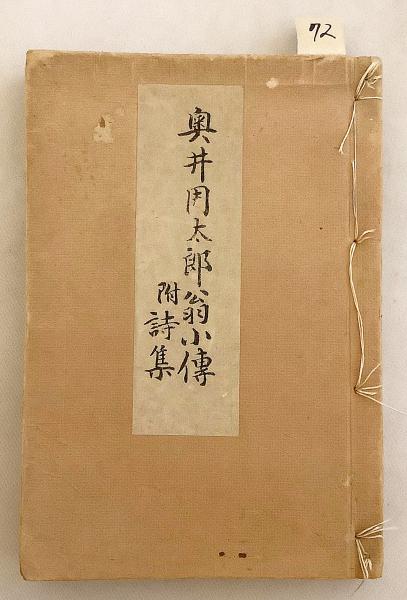 72
奥井用太郎翁小傳
附詩集